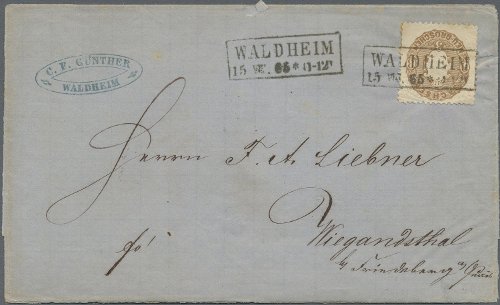 C. F. GÜNTHER
WALDHEIM
WALDHEIM
15 65 * 11-12
WALDHEIM
15 65 * 11-12
Herrn F. A. Liebner
Wiegandsthal
Friedeberg
fo!